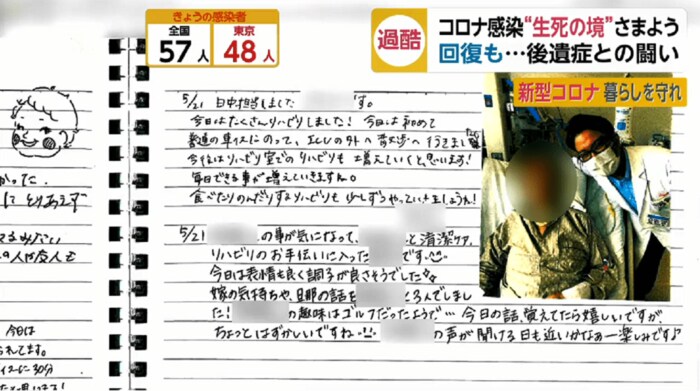 きょうの感染者
全国
57人
東京
48人
過酷
コロナ感染“生死の境”さまよう
回復も…後遺症との闘い
新型コロナ 暮らしを守れ
5/21 日中担当しました
す。
今日はたくさんリハビリしました! 今日は初めて
普通の車イスにのって、
の外へ
へ行きました
今後はリハビリ室でのリハビリも増えていくと思います!
毎日できる事が増えていきますね。
食べたりのんだりするリハビリも少しずつやっていきましょうね!
5/21
の事が気になって、
と清潔ケア、
リハビリのお手伝いに入った
です
今日は表情も良く調子が良さそうでした
嫁の気持ちや、旦那の話を
ろんでしまし
た!
の趣味はゴルフだったようで…今日の話、覚えてたら嬉しいですが
ちょっとはずかしいですね
の声が聞ける日も近いかなぁー楽しみです♪
かった。
にとりあえず
今日は
られてます。